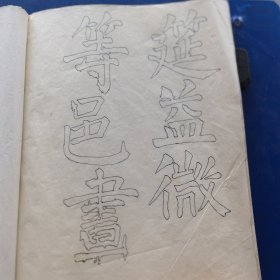 筵益微
等邑畫